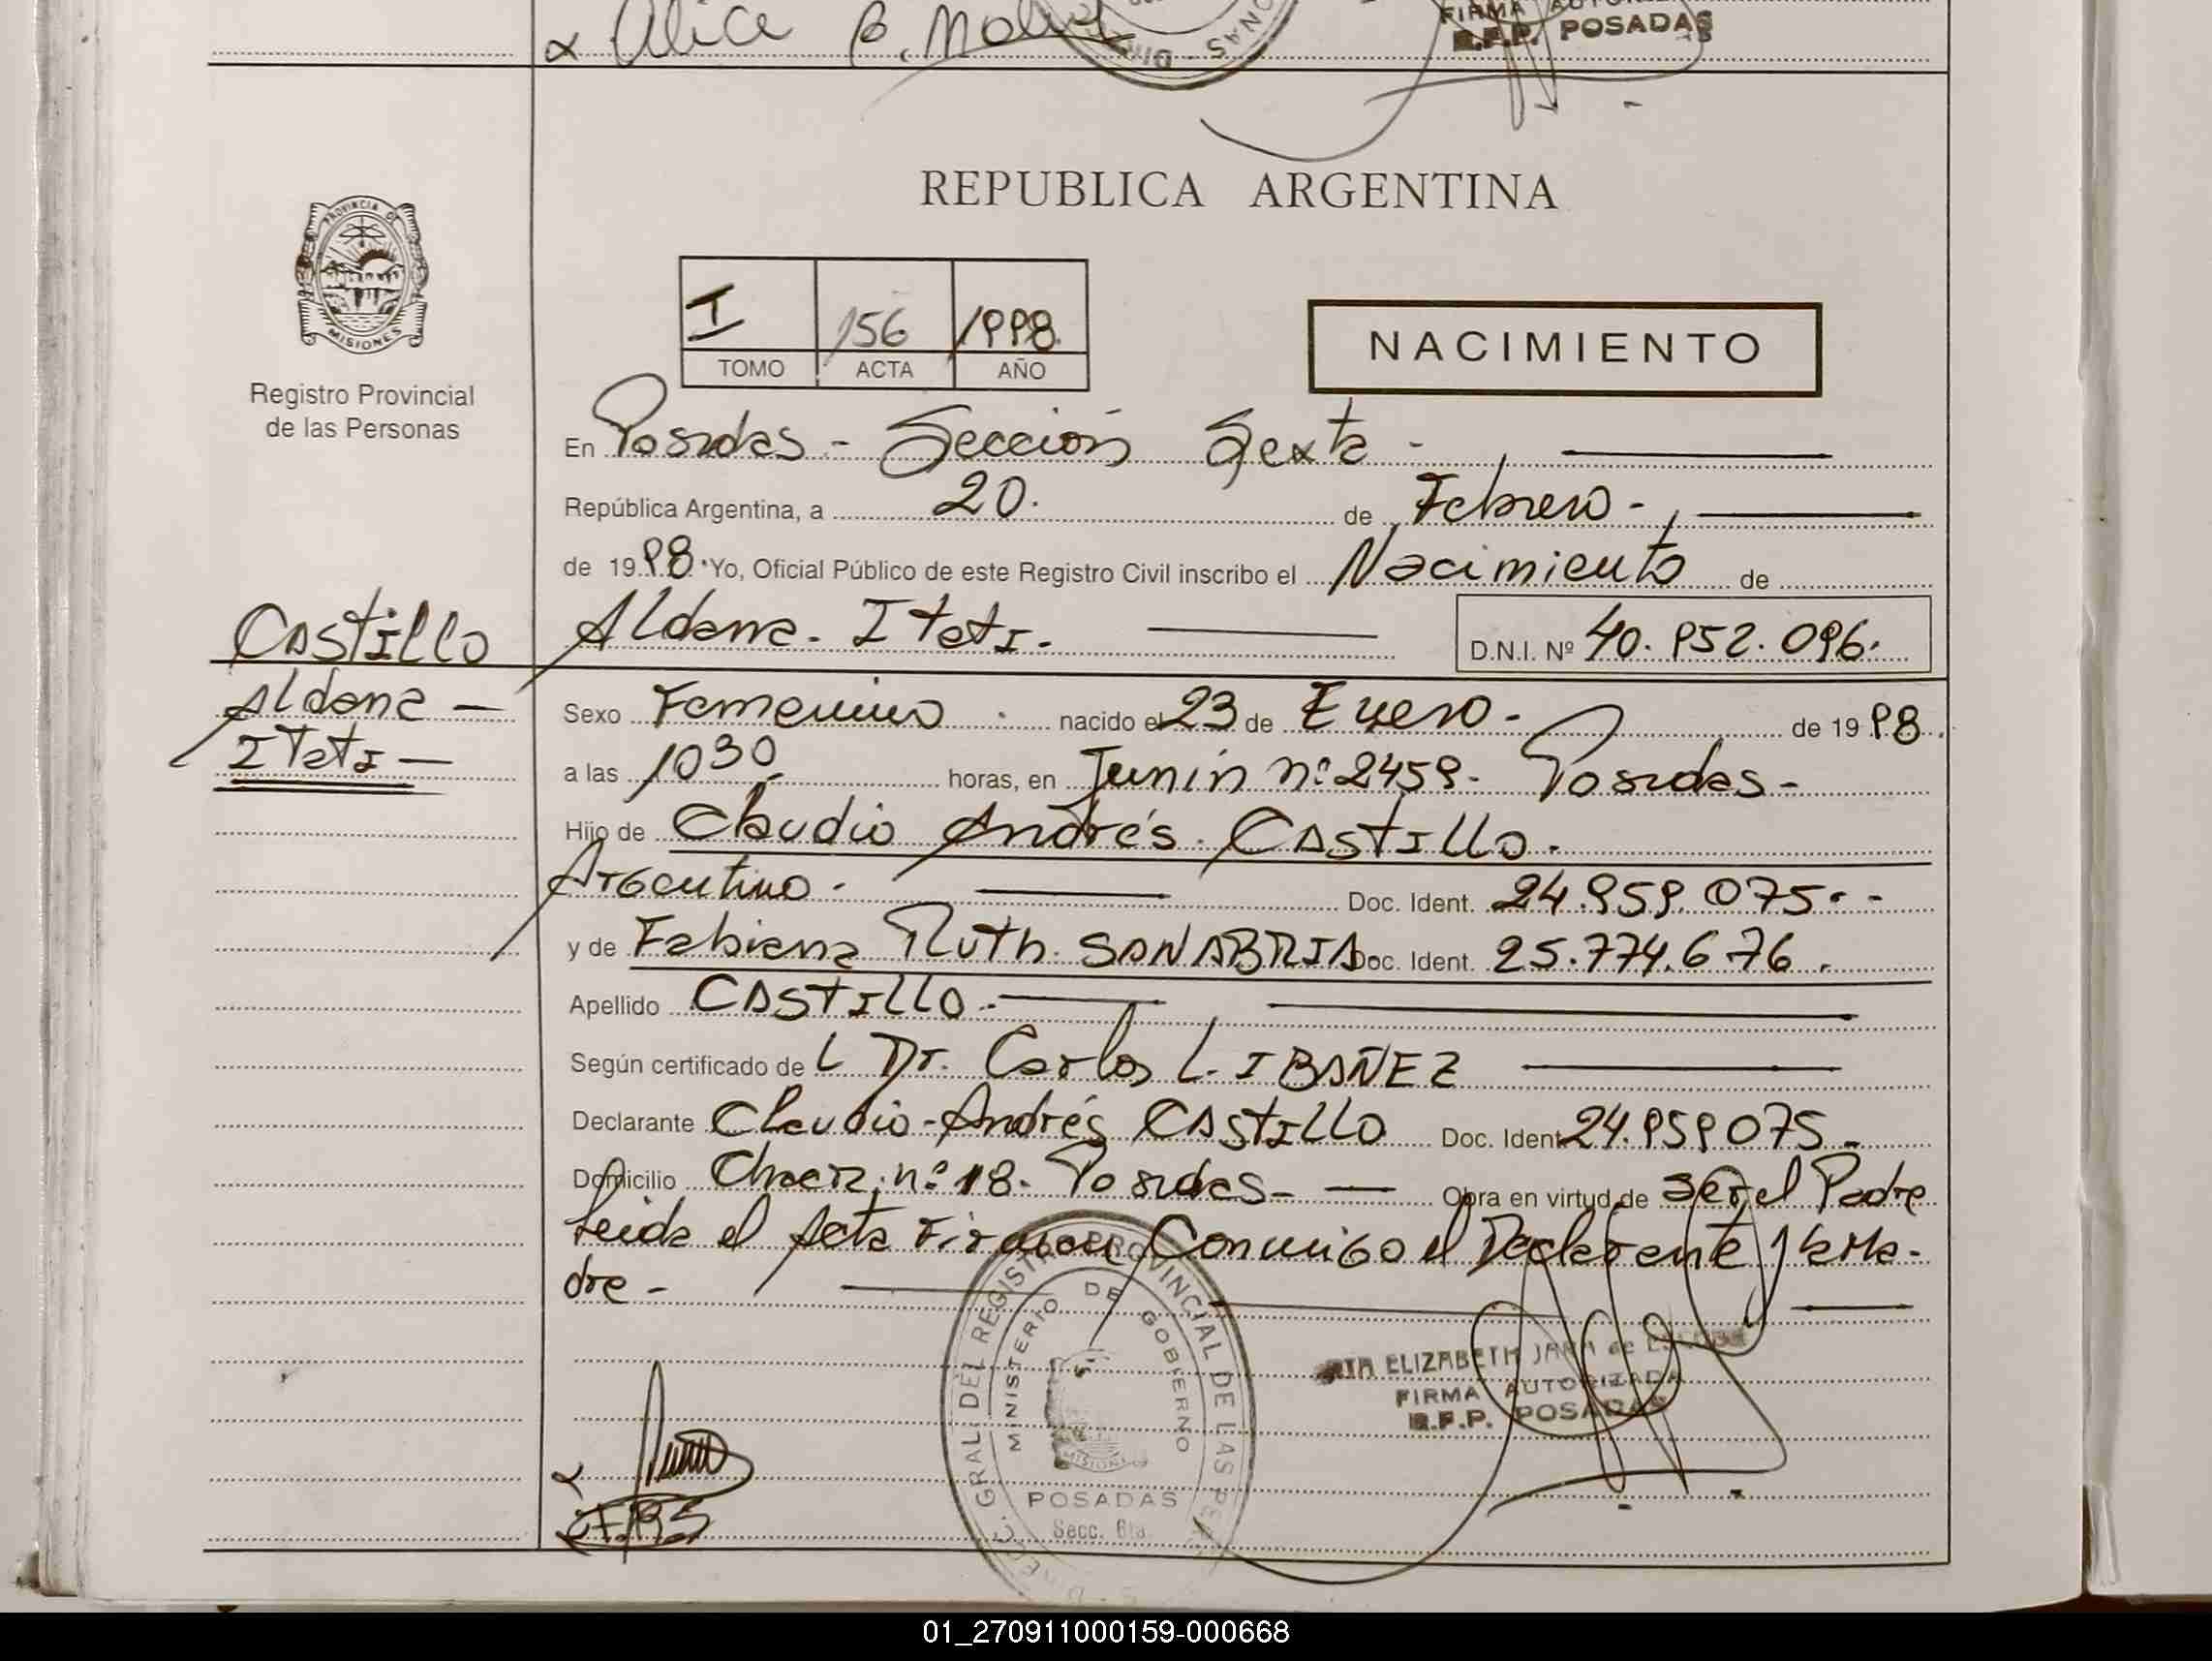 x Alice B. 
FIRMA AUTORIZADA
R.P.P. POSADAS
REPUBLICA ARGENTINA
PROVINCIA DE
MISIONES
Registro Provincial
de las Personas
I 156 1998
TOMO ACTA AÑO
NACIMIENTO
En Posadas - Sección Sexta -
República Argentina, a 20. de Febrero -
de 1998. Yo, Oficial Público de este Registro Civil inscribo el Nacimiento de
Aldana - Itatí - D.N.I. Nº 40.952.096.
Castillo
Aldana -
Itatí -
Sexo Femenino nacido el 23 de Enero - de 1998.
a las 1030 horas, en Junín nº 2459 - Posadas -
Hijo de Claudio Andrés Castillo.
Argentino - Doc. Ident. 24.959.075 - -
y de Fabiana Ruth SANABRIA Doc. Ident. 25.774.676.
Apellido CASTILLO -
Según certificado de L Dr. Carlos L. IBAÑEZ
Declarante Claudio - Andrés CASTILLO Doc. Ident 24.959075 -
Domicilio Chacr. nº 18 - Posadas - Obra en virtud de ser el Padre
Leida el Acta Firman Conmigo el Declarante y la Ma-
dre -
DIREC. GRAL. DEL REGISTRO PROVINCIAL DE LAS PERSONAS
MINISTERIO DE GOBIERNO
MISIONES
POSADAS
Secc. 6ta.
ELIZABETH JARA de
FIRMA AUTORIZADA
R.P.P. POSADAS
x
x F.R.S
01_270911000159-000668